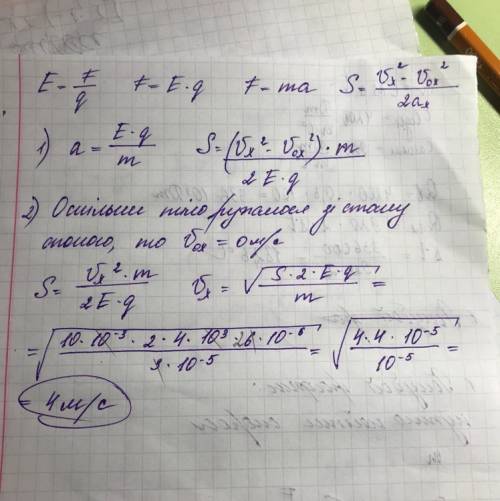 E = F/q   F = E·q   F = ma   S = (Vₓ² - V₀ₓ²)/2aₓ
1) a = E·q/m   S = (Vₓ² - V₀ₓ²)·m / 2E·q
2) Оскільки тіло рухалося зі стану
спокою, то V₀ₓ = 0 м/с
S = Vₓ²·m / 2E·q   Vₓ = √(S·2·E·q / m) =
= √(10·10⁻³·2·4·10³ · 10⁻⁶ / 10⁻⁵) = √(4·4·10⁻⁵ / 10⁻⁵) =
= 4 м/с